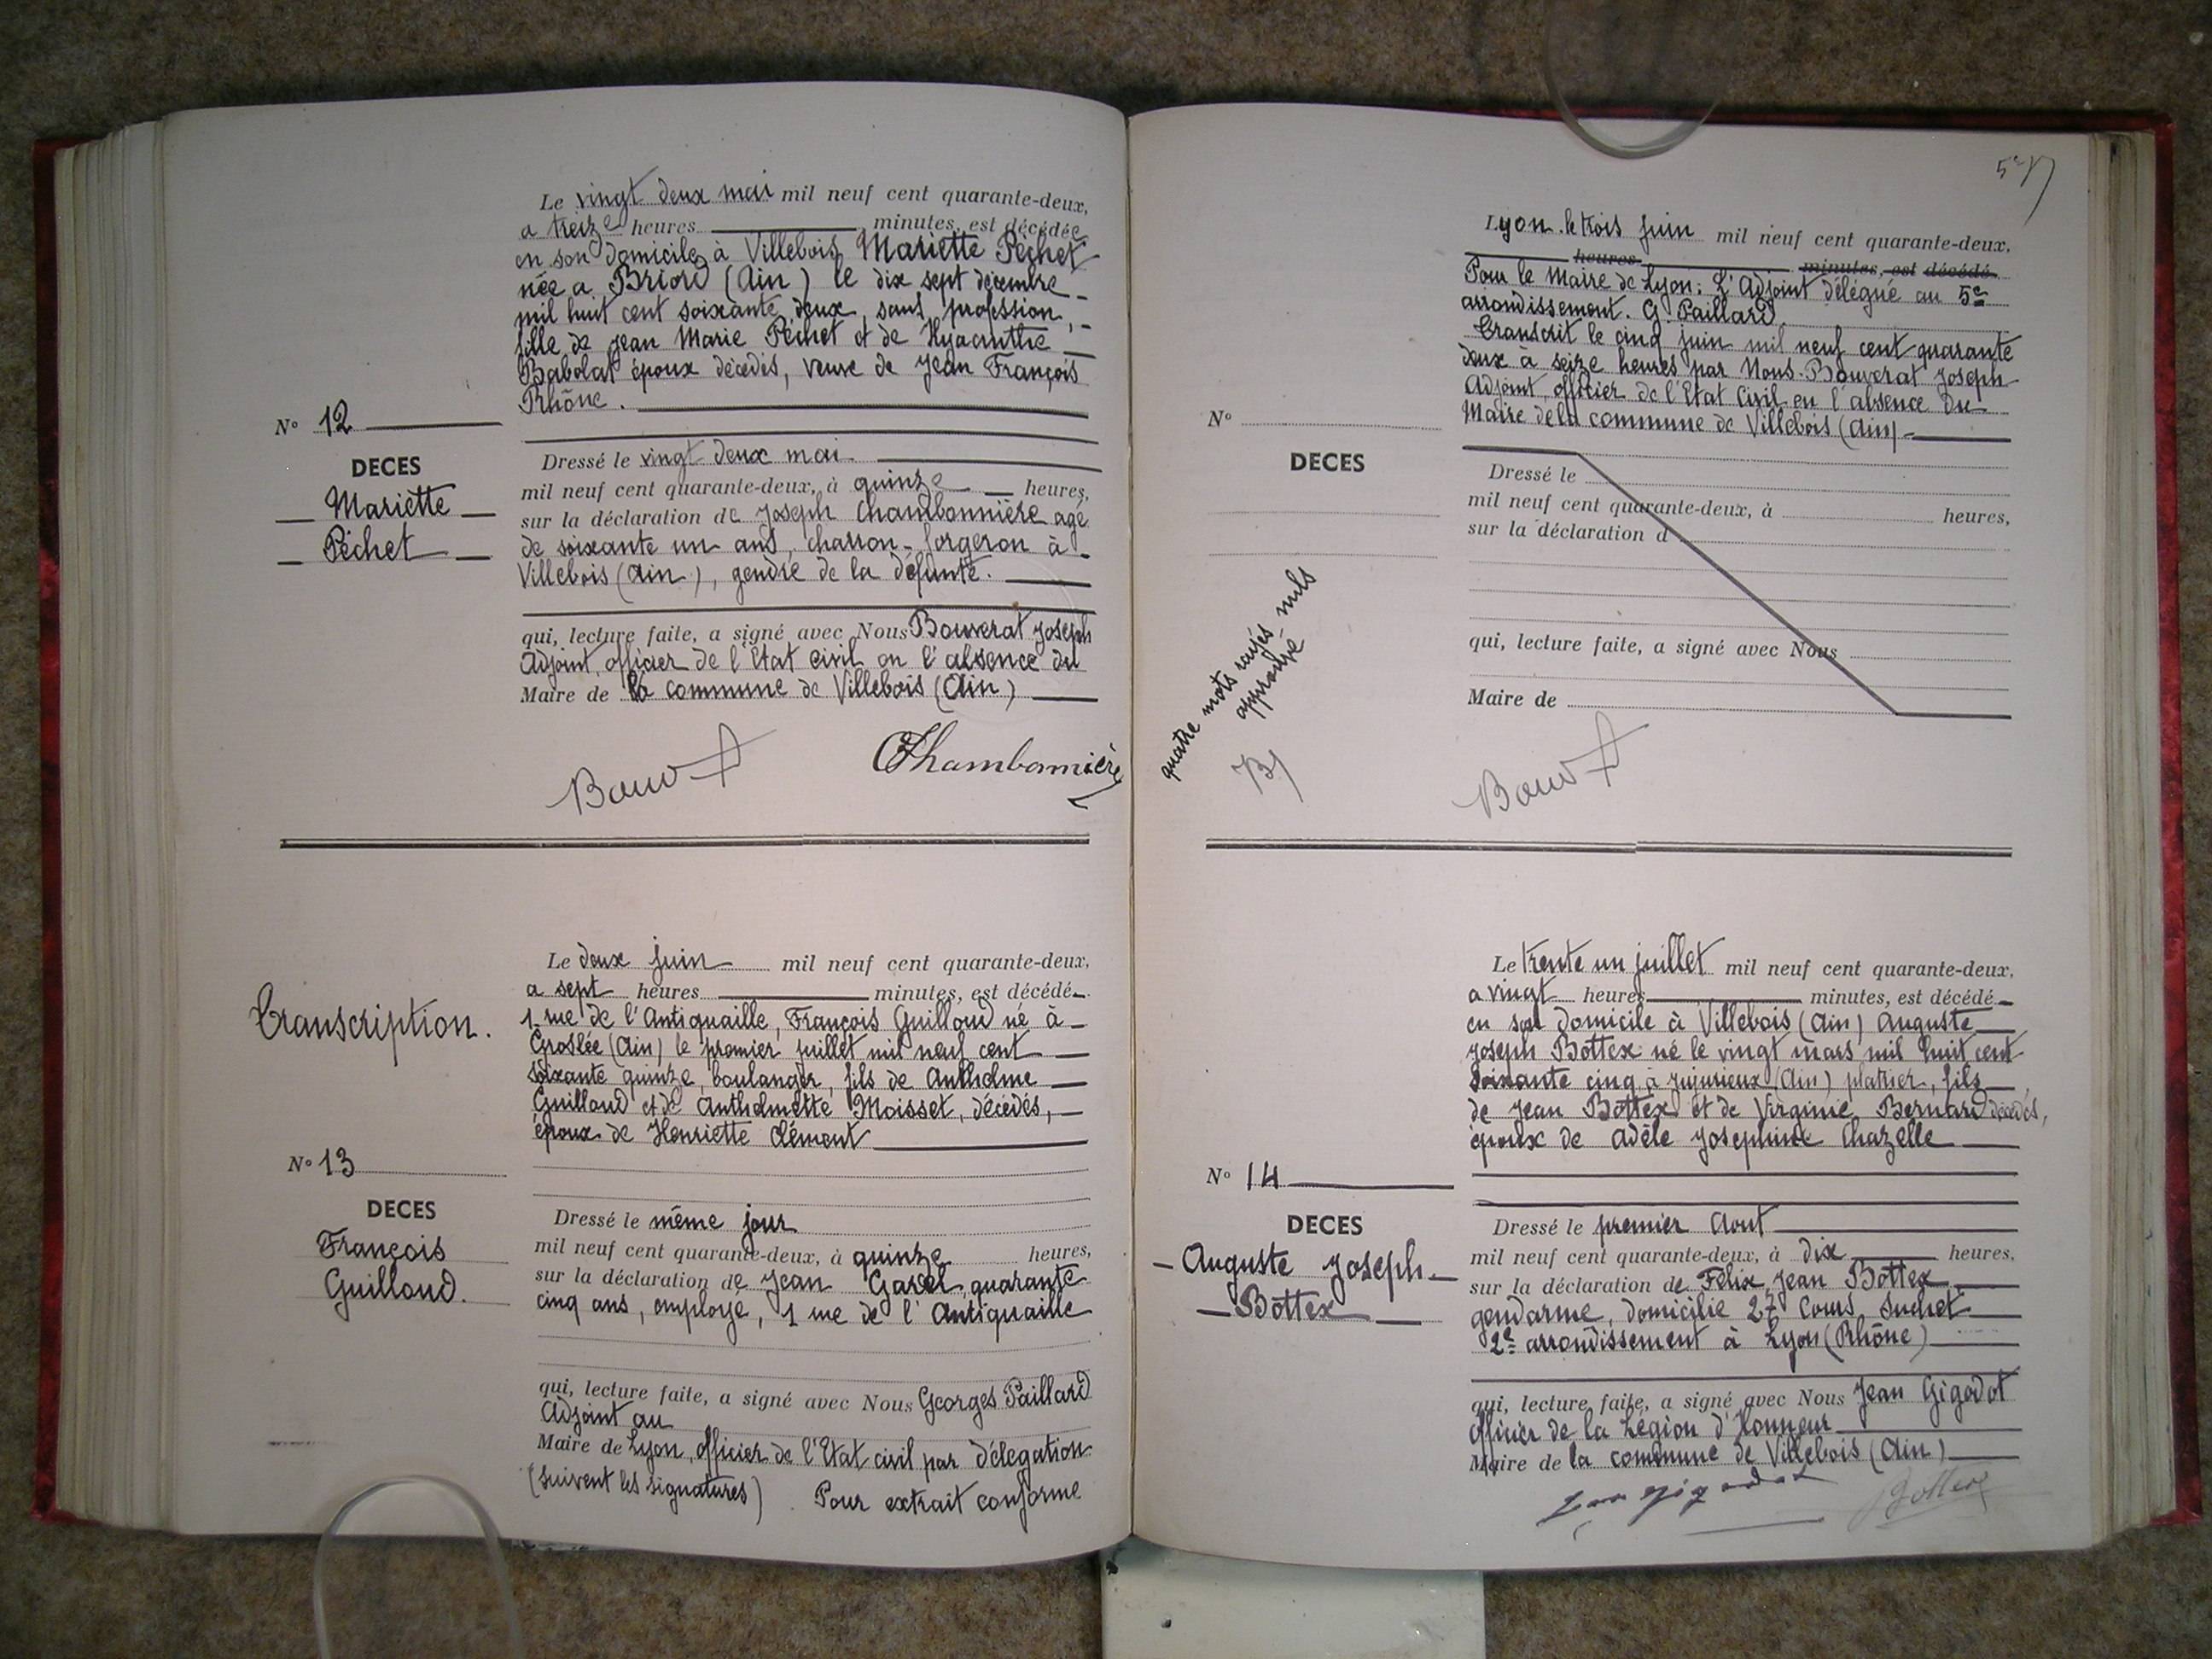 Le vingt deux mai mil neuf cent quarante-deux,
a treize heures minutes, est décédée
en son domicile à Villebois Mariette Péchet
née a Briord (Ain) le dix sept décembre
mil huit cent soixante deux, sans profession,
fille de Jean Marie Péchet et de Hyacinthe
Babolat époux décédés, veuve de Jean François
Rhône.
N° 12
DECES
Mariette
Péchet
Dressé le vingt deux mai
mil neuf cent quarante-deux, à quinze heures,
sur la déclaration de Joseph Chambonnière agé
de soixante un ans, charron-forgeron à
Villebois (Ain), gendre de la défunte.
qui, lecture faite, a signé avec Nous Bouverat Joseph
Adjoint, officier de l'Etat civil en l'absence du
Maire de la commune de Villebois (Ain)
Chambonnière
Transcription.
Le deux juin mil neuf cent quarante-deux,
a sept heures minutes, est décédé
1 rue de l'Antiquaille, François Guilloud né à
Groslée (Ain) le premier juillet mil neuf cent
soixante quinze, boulanger, fils de Anthelme
Guilloud et de Anthelmette Moisset, décédés,
époux de Henriette Clément
N° 13
DECES
François
Guilloud.
Dressé le même jour
mil neuf cent quarante-deux, à quinze heures,
sur la déclaration de Jean Garel, quarante
cinq ans, employé, 1 rue de l'Antiquaille
qui, lecture faite, a signé avec Nous Georges Paillard
Adjoint au
Maire de Lyon, officier de l'Etat civil par délégation
(suivent les signatures) Pour extrait conforme
Lyon le trois juin mil neuf cent quarante-deux,
heures minutes, est décédé
Pour le Maire de Lyon: L'Adjoint délégué au 5e
arrondissement. G. Paillard
Transcrit le cinq juin mil neuf cent quarante
deux à seize heures par Nous Bouverat Joseph
Adjoint, officier de l'Etat Civil en l'absence du
Maire de la commune de Villebois (Ain)
N°
DECES
Dressé le
mil neuf cent quarante-deux, à heures,
sur la déclaration d
qui, lecture faite, a signé avec Nous
Maire de
quatre mots rayés nuls
approuvé
Le trente un juillet mil neuf cent quarante-deux,
a vingt heures minutes, est décédé
en son domicile à Villebois (Ain) Auguste
Joseph Bottex né le vingt mars mil huit cent
soixante cinq à Jujurieux (Ain) platrier, fils
de Jean Bottex et de Virginie Bernard décédés,
époux de Adèle Josephine Chazelle
N° 14
DECES
Auguste Joseph
Bottex
Dressé le premier Aout
mil neuf cent quarante-deux, à dix heures,
sur la déclaration de Félix Jean Bottex
gendarme, domicilié 27 Cours Suchet
2e arrondissement à Lyon (Rhône)
qui, lecture faite, a signé avec Nous Jean Gigodot
officier de la Légion d'Honneur
Maire de la commune de Villebois (Ain)
Jean Gigodot Bottex